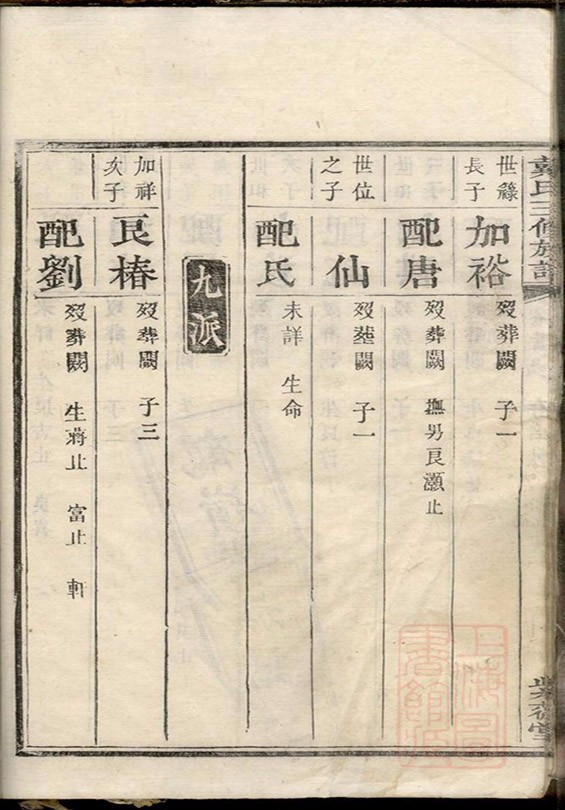 戴氏三修族譜
世籙長子
加裕
歿葬闕 子一
配唐
歿葬闕 撫男良灝止
世位之子
仙
歿塟闕 子一
配氏
未詳 生命
九派
加祥次子
良椿
歿葬闕 子三
配劉
歿葬闕 生蔣止 富止 軒
上海圖書館藏